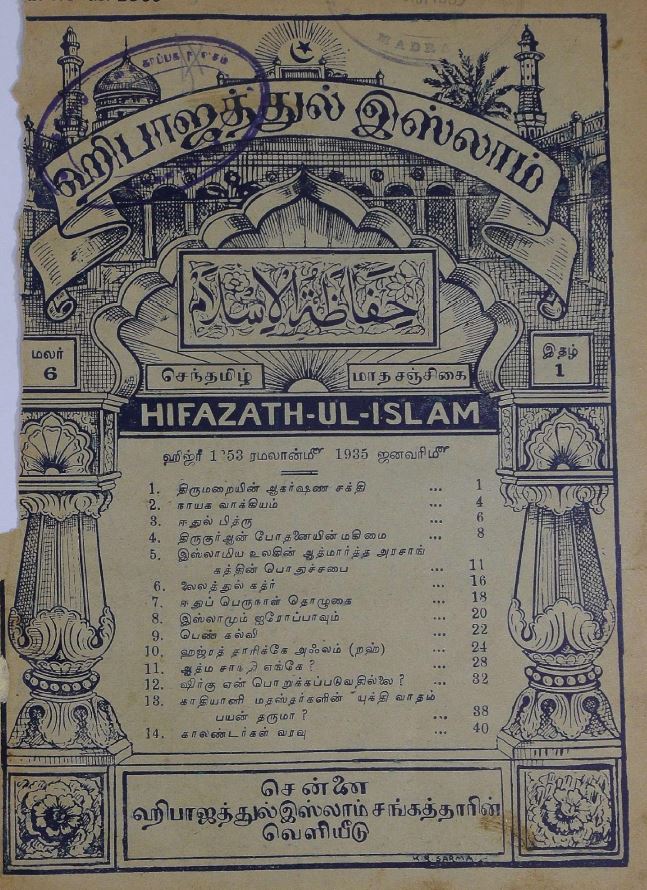 MADR
ஹிபாஜத்துல் இஸ்லாம்
حفاظة الاسلام
மலர்
6
இதழ்
1
செந்தமிழ் மாதசஞ்சிகை
HIFAZATH-UL-ISLAM
ஹிஜ்ரீ 1353 ரமலான்மீ 1935 ஜனவரிமீ
1. திருமறையின் ஆகர்ஷண சக்தி ... 1
2. நாயக வாக்கியம் ... 4
3. ஈதுல் பித்ரு ... 6
4. திருகுர்ஆன் போதனையின் மகிமை ... 8
5. இஸ்லாமிய உலகின் ஆத்மார்த்த அரசாங்
கத்தின் பொதுச்சபை ... 11
6. லைலத்துல் கத்ர் ... 16
7. ஈதுப் பெருநாள் தொழுகை ... 18
8. இஸ்லாமும் ஐரோப்பாவும் ... 20
9. பெண் கல்வி ... 22
10. ஹஜ்ரத் தாரிக்கே அஃலம் (றஹ்) ... 24
11. ஆத்ம சாந்தி எங்கே ? ... 28
12. ஷிர்கு ஏன் பொறுக்கப்படுவதில்லை ? ... 32
13. காதியானி மதஸ்தர்களின் யுக்தி வாதம்
பயன் தருமா ? ... 38
14. காலண்டர்கள் வரவு ... 40
சென்னை
ஹிபாஜத்துல்இஸ்லாம் சங்கத்தாரின்
வெளியீடு
K.R. SARMA